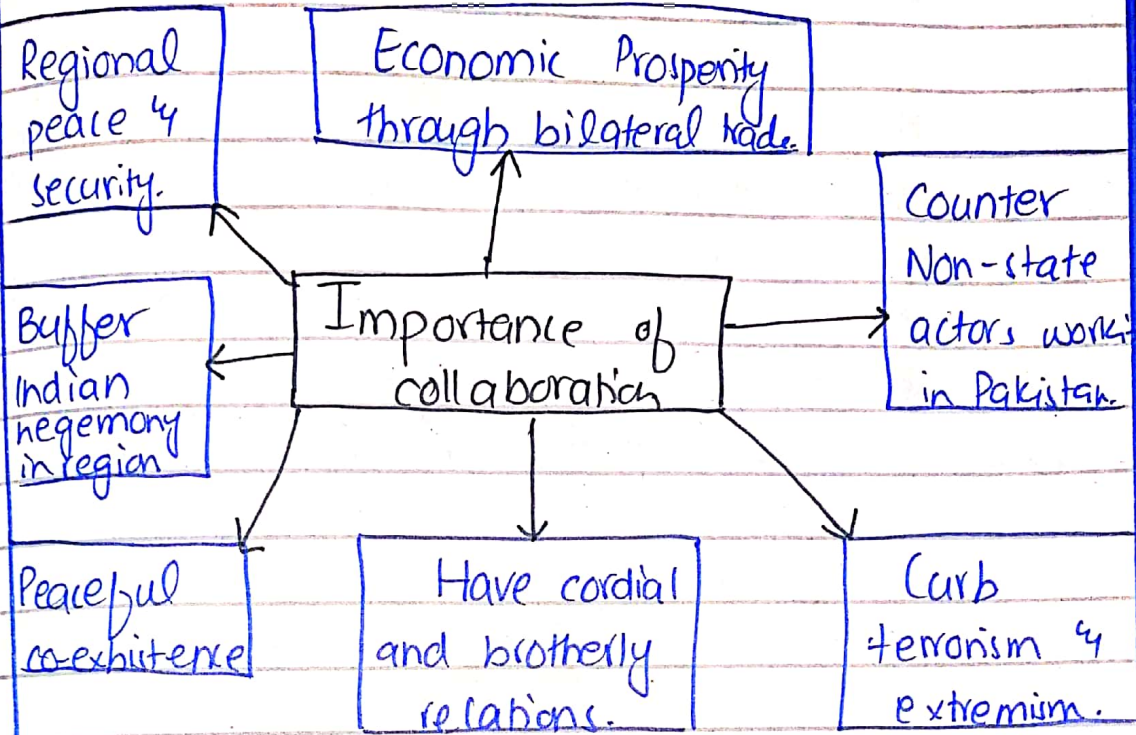 Regional
peace &
security.
Economic Prosperity
through bilateral trade.
Counter
Non-state
actors worki
in Pakistan.
Importance of
collaboration
Buffer
Indian
hegemony
in region
Peaceful
co-exhistence
Have cordial
and brotherly
relations.
Curb
terrorism &
extremism.